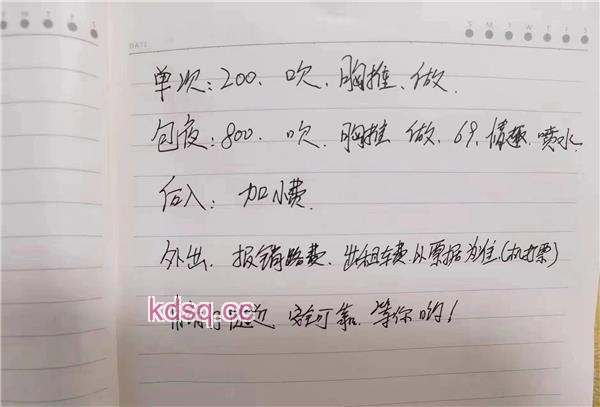 DATE
S M T W T F S
单次:200、吹、胸推、做.
包夜:800、吹、胸推 做、69、情趣、喷水.
后入: 加小费.
外出、报销路费、出租车费、以票据为准(机打票)
安全可靠、等你哟!
kdsq.cc